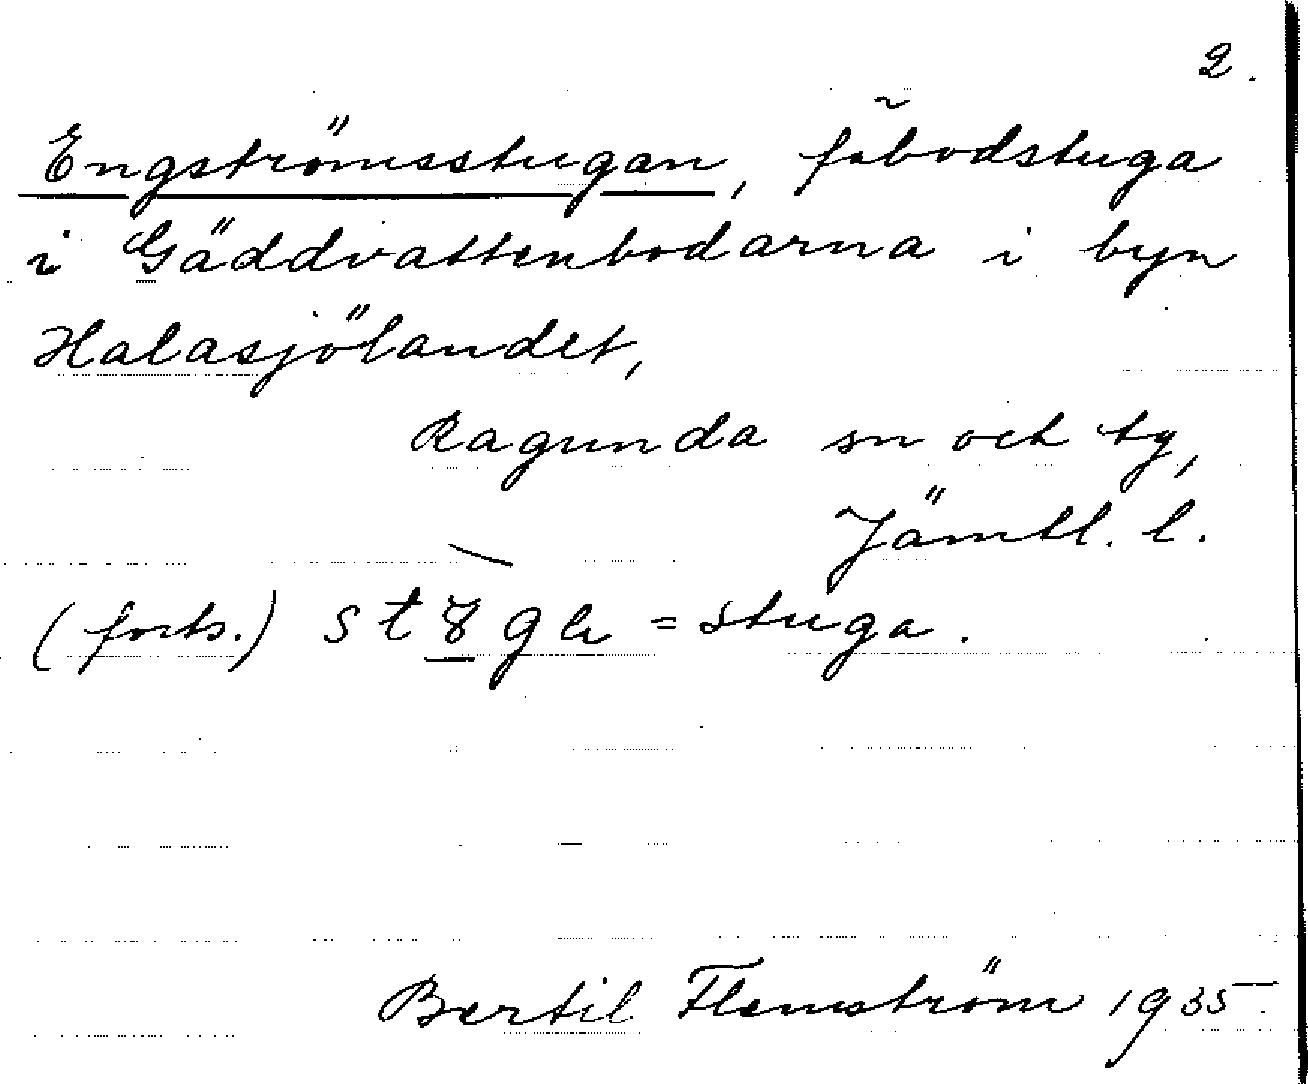 2.
Engströmsstugan, fäbodstuga
i Gäddvattenbodarna i byn
Halasjölandet,
Ragunda sn och tg,
Jämtl. l.
(forts.) = stuga.
Bertil Flemström 1935.